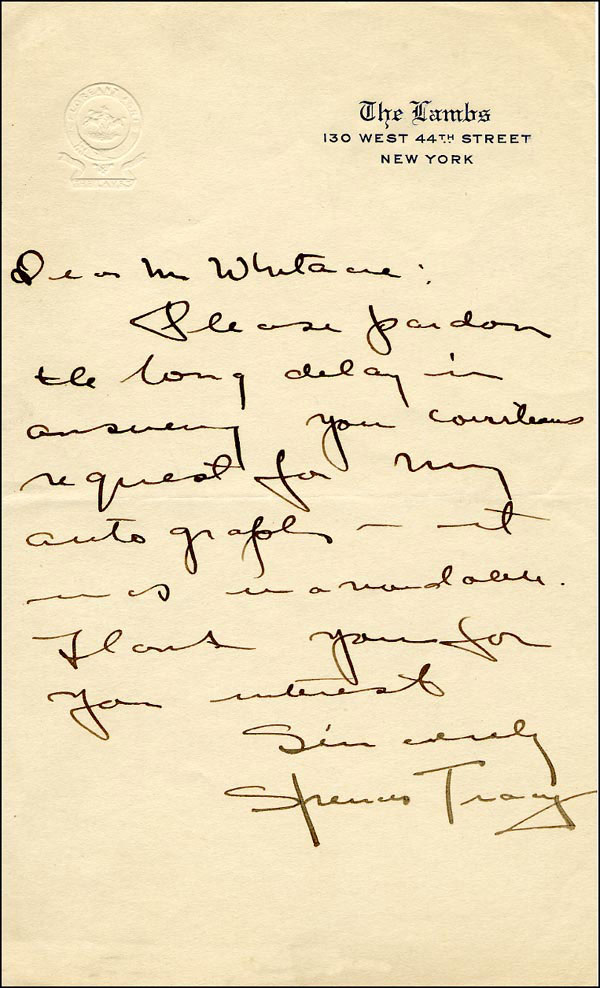 The Lambs
130 WEST 44TH STREET
NEW YORK
Dear Mr Whitacre:
Please pardon
the long delay in
answering your courteous
request for my
autograph – it
was unavoidable.
Thank you for
your interest
Sincerely
Spencer Tracy